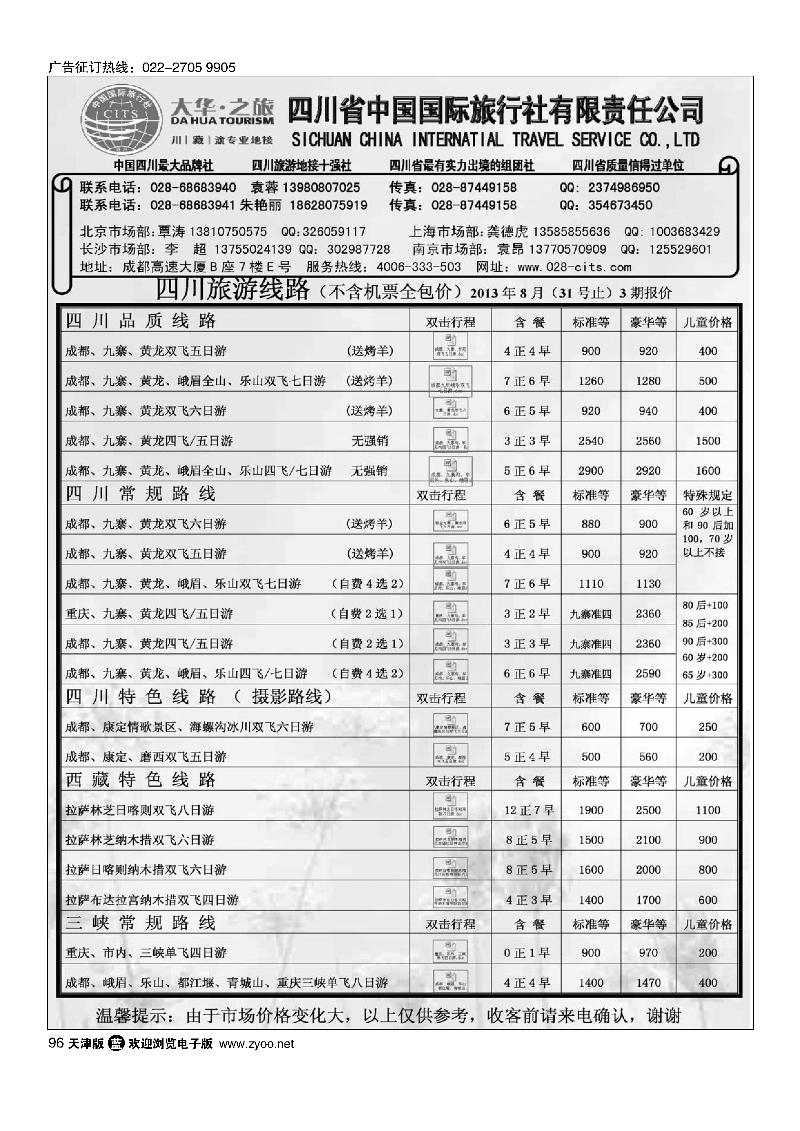 广告征订热线：022-2705 9905
中国国际旅行社
CITS
大华·之旅
DA HUA TOURISM
川│藏│渝专业地接
四川省中国国际旅行社有限责任公司
SICHUAN CHINA INTERNATIAL TRAVEL SERVICE CO.,LTD
中国四川最大品牌社 四川旅游地接十强社 四川省最有实力出境的组团社 四川省质量信得过单位
联系电话：028-68683940 袁蓉 13980807025 传真：028-87449158 QQ: 2374986950
联系电话：028-68683941 朱艳丽 18628075919 传真：028-87449158 QQ：354673450
北京市场部:覃涛 13810750575 QQ:326059117 上海市场部:龚德虎 13585855636 QQ: 1003683429
长沙市场部：李 超 13755024139 QQ：302987728 南京市场部：袁昂 13770570909 QQ：125529601
地址：成都高速大厦B座7楼E号 服务热线：4006-333-503 网址：www.028-cits.com
四川旅游线路（不含机票全包价）2013年8月（31号止）3期报价
四川品质线路 双击行程 含餐 标准等 豪华等 儿童价格
成都、九寨、黄龙双飞五日游 (送烤羊) 4正4早 900 920 400
成都、九寨、黄龙、峨眉全山、乐山双飞七日游 (送烤羊) 7正6早 1260 1280 500
成都、九寨、黄龙双飞六日游 (送烤羊) 6正5早 920 940 400
成都、九寨、黄龙四飞/五日游 无强销 3正3早 2540 2560 1500
成都、九寨、黄龙、峨眉全山、乐山四飞/七日游 无强销 5正6早 2900 2920 1600
四川常规路线 双击行程 含餐 标准等 豪华等 特殊规定
成都、九寨、黄龙双飞六日游 (送烤羊) 6正5早 880 900
60岁以上
和90后加
100，70岁
以上不接
成都、九寨、黄龙双飞五日游 (送烤羊) 4正4早 900 920
成都、九寨、黄龙、峨眉、乐山双飞七日游 （自费4选2） 7正6早 1110 1130
重庆、九寨、黄龙四飞/五日游 （自费2选1） 3正2早 九寨准四 2360
80后+100
85后+200
成都、九寨、黄龙四飞/五日游 （自费2选1） 3正3早 九寨准四 2360
90后+300
60岁+200
成都、九寨、黄龙、峨眉、乐山四飞/七日游 （自费4选2） 6正6早 九寨准四 2590
65岁+300
四川特色线路（摄影路线） 双击行程 含餐 标准等 豪华等 儿童价格
成都、康定情歌景区、海螺沟冰川双飞六日游 7正5早 600 700 250
成都、康定、磨西双飞五日游 5正4早 500 560 200
西藏特色线路 双击行程 含餐 标准等 豪华等 儿童价格
拉萨林芝日喀则双飞八日游 12正7早 1900 2500 1100
拉萨林芝纳木措双飞六日游 8正5早 1500 2100 900
拉萨日喀则纳木措双飞六日游 8正5早 1600 2000 800
拉萨布达拉宫纳木措双飞四日游 4正3早 1400 1700 600
三峡常规路线 双击行程 含餐 标准等 豪华等 儿童价格
重庆、市内、三峡单飞四日游 0正1早 900 970 200
成都、峨眉、乐山、都江堰、青城山、重庆三峡单飞八日游 4正4早 1400 1470 400
温馨提示：由于市场价格变化大，以上仅供参考，收客前请来电确认，谢谢
96 天津版 蓝 欢迎浏览电子版 www.zyoo.net